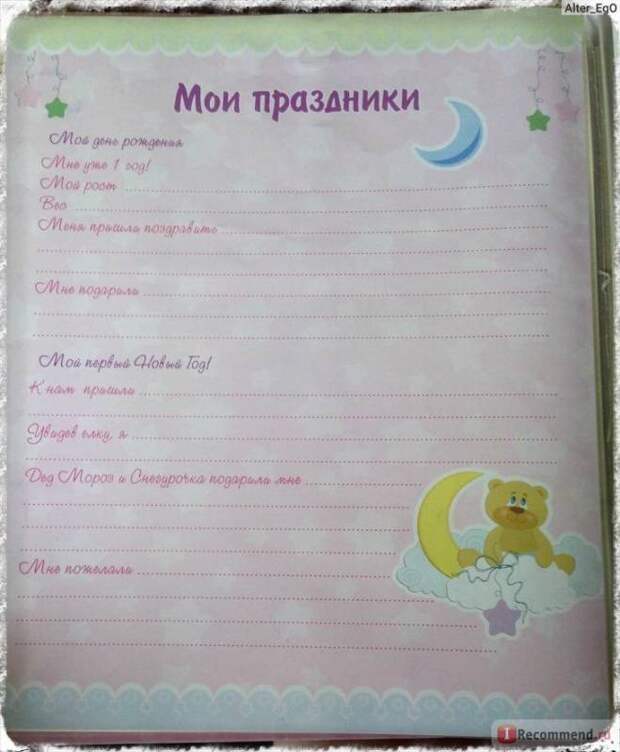 Alter_EgO
Мои праздники
Мой день рождения
Мне уже 1 год!
Мой рост
Вес
Меня пришли поздравить
Мне подарили
Мой первый Новый Год!
К нам пришли
Увидев елку, я
Дед Мороз и Снегурочка подарили мне
Мне пожелали
IRecommend.ru